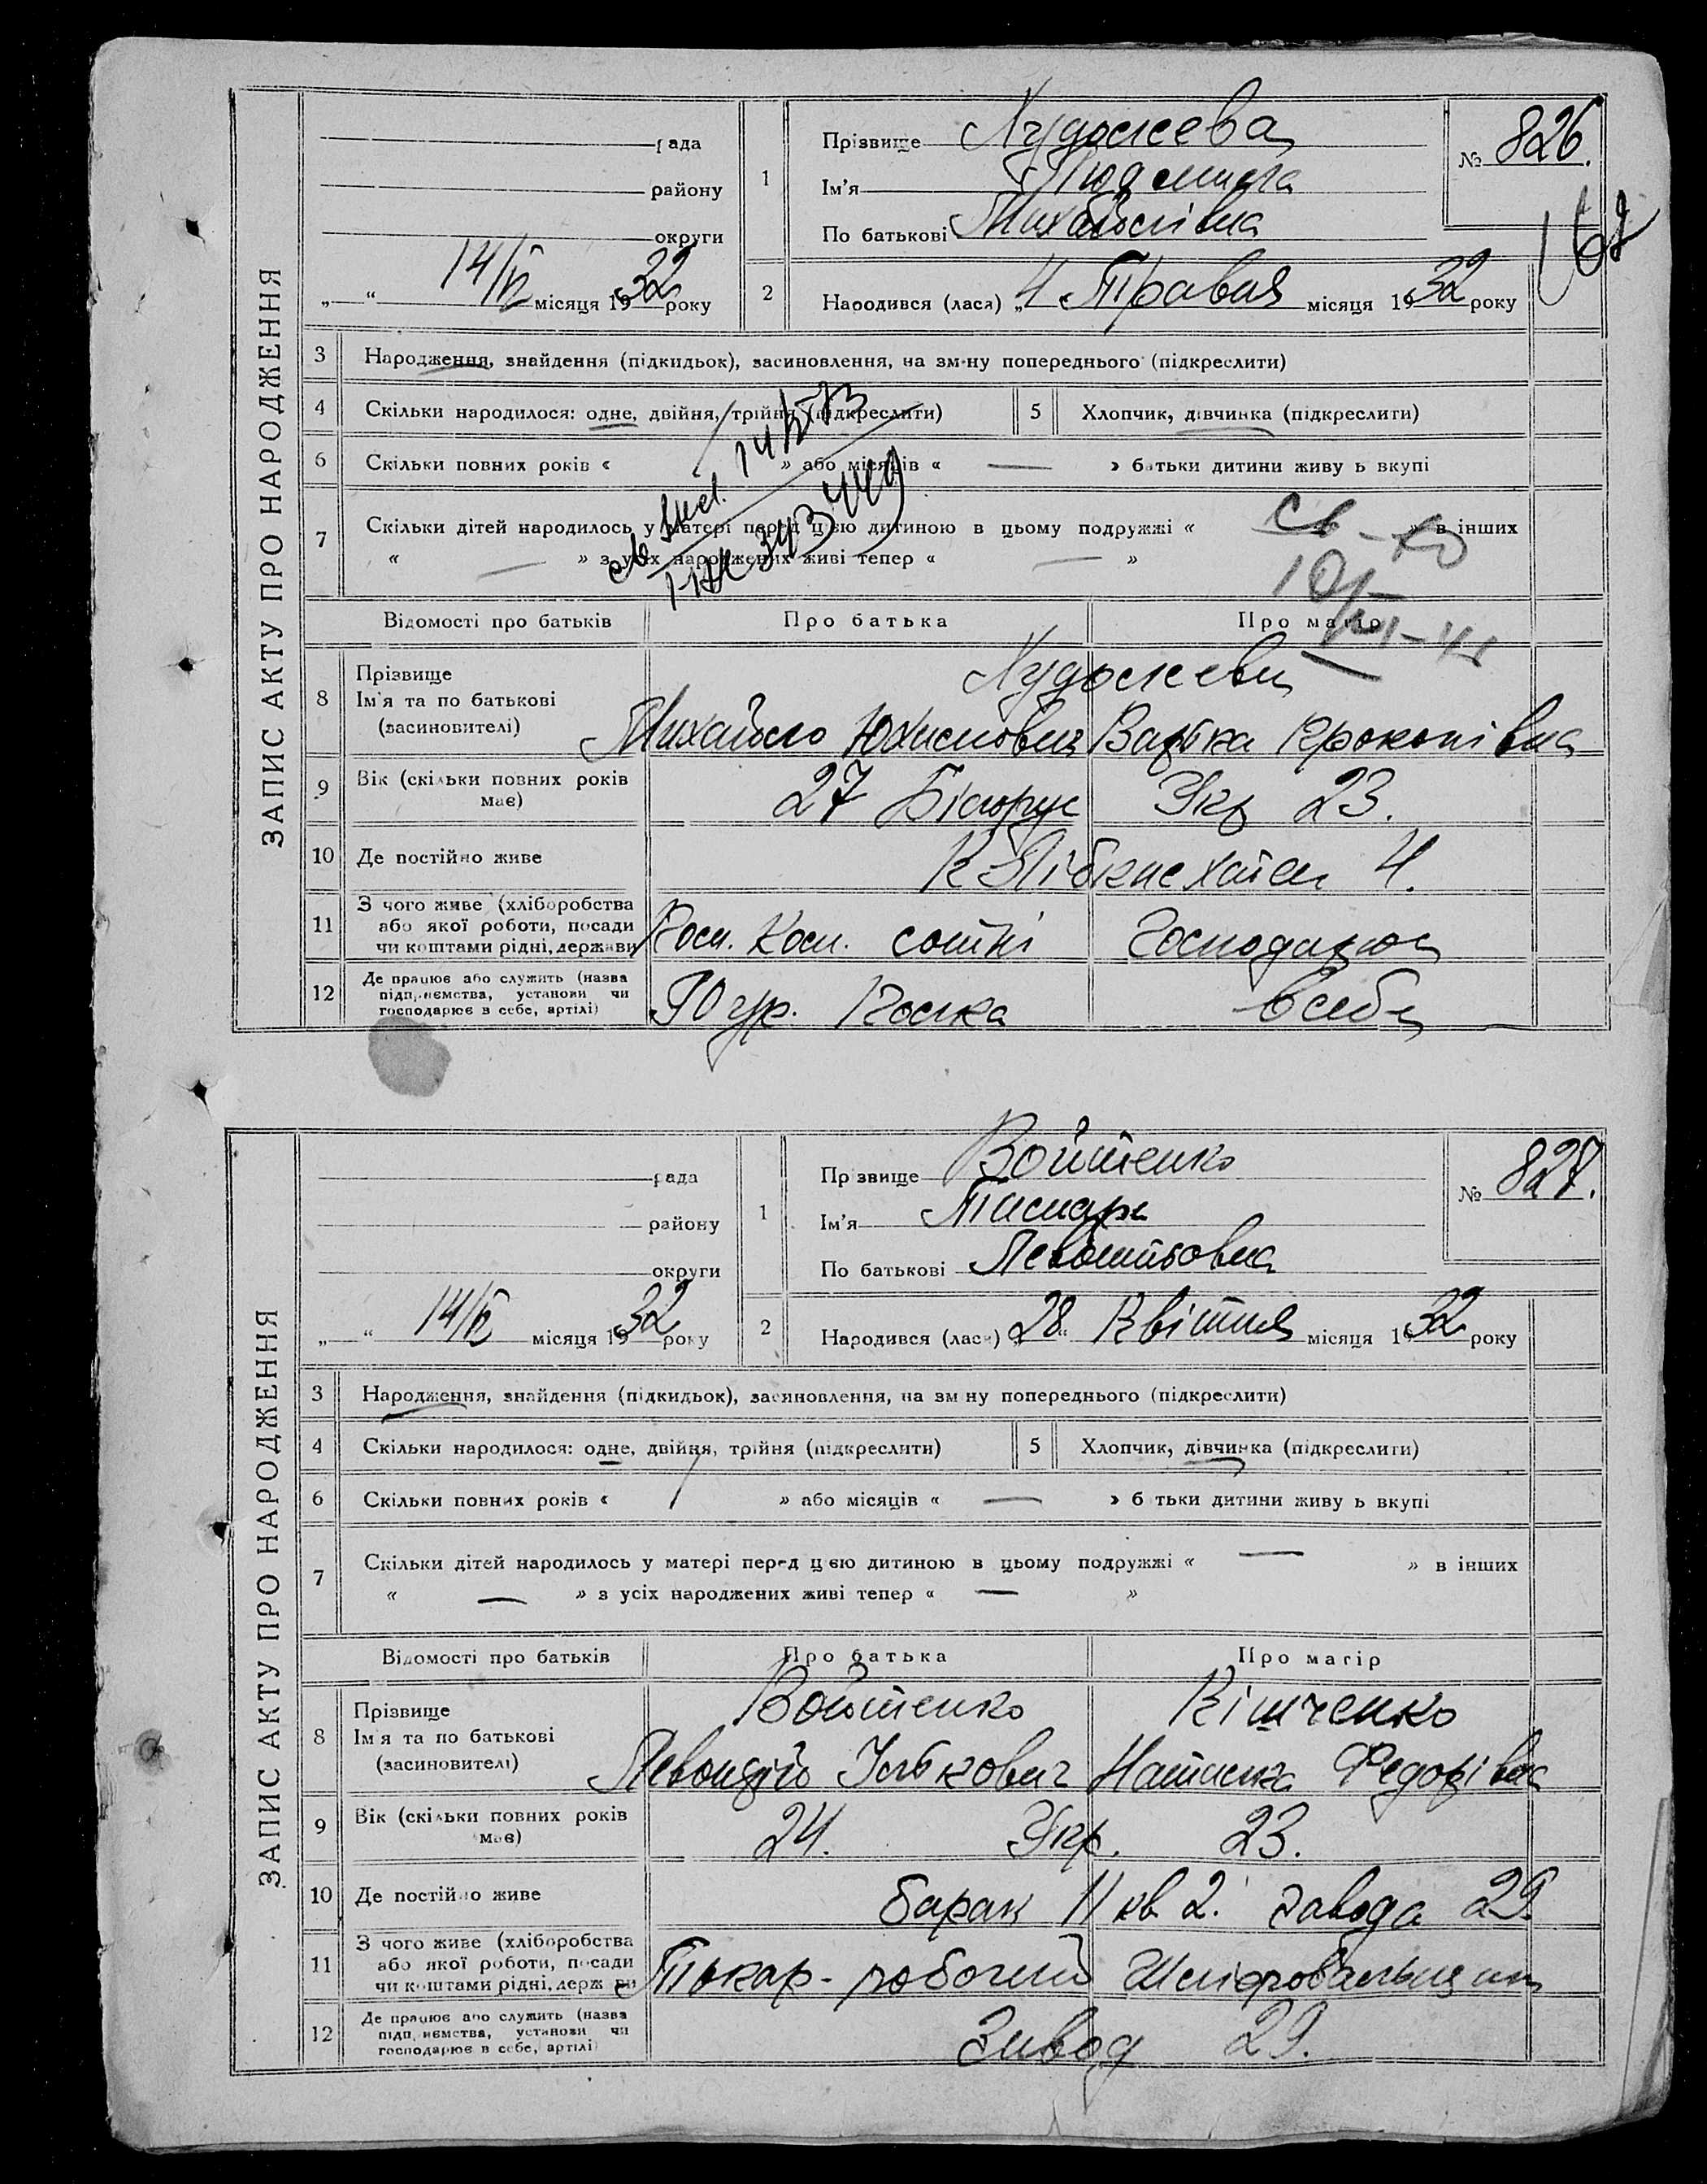 ЗАПИС АКТУ ПРО НАРОДЖЕННЯ
рада
району
округи
„ “ 14/V місяця 1932 року
1
Прізвище
Ім'я Людмила
По батькові Михайлівна
№ 826.
168
2
Народився (лася) „4 Травня місяця 1932 року
3 Народження, знайдення (підкидьок), засиновлення, на зміну попереднього (підкреслити)
4 Скільки народилося: одне, двійня, трійня (підкреслити)
5 Хлопчик, дівчинка (підкреслити)
6 Скільки повних років « » або місяців « — » батьки дитини живуть вкупі
7 Скільки дітей народилось у матері перед цією дитиною в цьому подружжі « » в інших
« — » з усіх народжених живі тепер « — »
Відомості про батьків Про батька Про матір
8 Прізвище
Ім'я та по батькові
(засиновителі)
Михайло Юхимович Варька Прокопівна
9 Вік (скільки повних років має) 27 Білорус Укр 23.
10 Де постійно живе
11 З чого живе (хліборобства або якої роботи, посади чи коштами рідні, держави) сотні Господарює
12 Де працює або служить (назва підприємства, установи чи господарює в себе, артілі) в себе
ЗАПИС АКТУ ПРО НАРОДЖЕННЯ
рада
району
округи
„ “ 14/V місяця 1932 року
1
Прізвище Войтенко
Ім'я Тамара
По батькові Левонтьовна
№ 827.
2
Народився (лася) „28“ Квітня місяця 1932 року
3 Народження, знайдення (підкидьок), засиновлення, на зміну попереднього (підкреслити)
4 Скільки народилося: одне, двійня, трійня (підкреслити)
5 Хлопчик, дівчинка (підкреслити)
6 Скільки повних років « 1 » або місяців « — » батьки дитини живуть вкупі
7 Скільки дітей народилось у матері перед цією дитиною в цьому подружжі « — » в інших
« — » з усіх народжених живі тепер « — »
Відомості про батьків Про батька Про матір
8 Прізвище Войтенко Кітченко
Ім'я та по батькові
(засиновителі)
Левонтій Ількович Наталка Федорівна
9 Вік (скільки повних років має) 24. Укр. 23.
10 Де постійно живе барак 11 кв 2. завода 29.
11 З чого живе (хліборобства або якої роботи, посади чи коштами рідні, держави) Токар - робочий Шліфовальщиця
12 Де працює або служить (назва підприємства, установи чи господарює в себе, артілі) Завод 29.